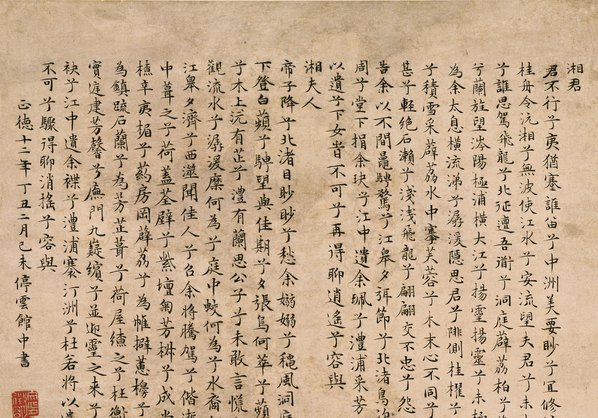 湘君
君不行兮夷猶蹇誰留兮中洲美要眇兮宜修
桂舟令沅湘兮無波使江水兮安流望夫君兮未
兮誰思駕飛龍兮北征邅吾道兮洞庭薜荔柏兮
兮蘭旌望涔陽極浦橫大江兮揚靈揚靈兮未
為余太息橫流涕兮潺湲隱思君兮陫側桂櫂兮
兮積雪采薜荔水中搴芙蓉兮木末心不同兮
甚兮輕絕石瀨兮淺淺飛龍兮翩翩交不忠兮怨
告余以不閒鼂騁騖兮江皋夕弭節兮北渚鳥次
周兮堂下捐余玦兮江中遺余佩兮澧浦采芳
以遺兮下女旹不可兮再得聊逍遙兮容與
湘夫人
帝子降兮北渚目眇眇兮愁余嫋嫋兮穐風洞庭
下登白薠兮騁望與佳期兮夕張鳥何萃兮蘋
兮木上沅有芷兮澧有蘭思公子兮未敢言慌
觀流水兮潺湲麋何為兮庭中蛟何為兮水裔
江皋夕濟兮西澨聞佳人兮召余將騰駕兮偕逝
中葺之兮荷蓋荃壁兮紫壇匊芳椒兮成堂
橑辛夷楣兮葯房罔薜荔兮為帷擗蕙櫋兮
為鎮疏石蘭兮為芳芷葺兮荷屋繚之兮杜衡
實庭建芳馨兮廡門九嶷繽兮並迎靈之來兮
袂兮江中遺余褋兮澧浦搴汀洲兮杜若將以遺
不可兮驟得聊消搖兮容與
正德十二年丁丑二月己未停雲館中書